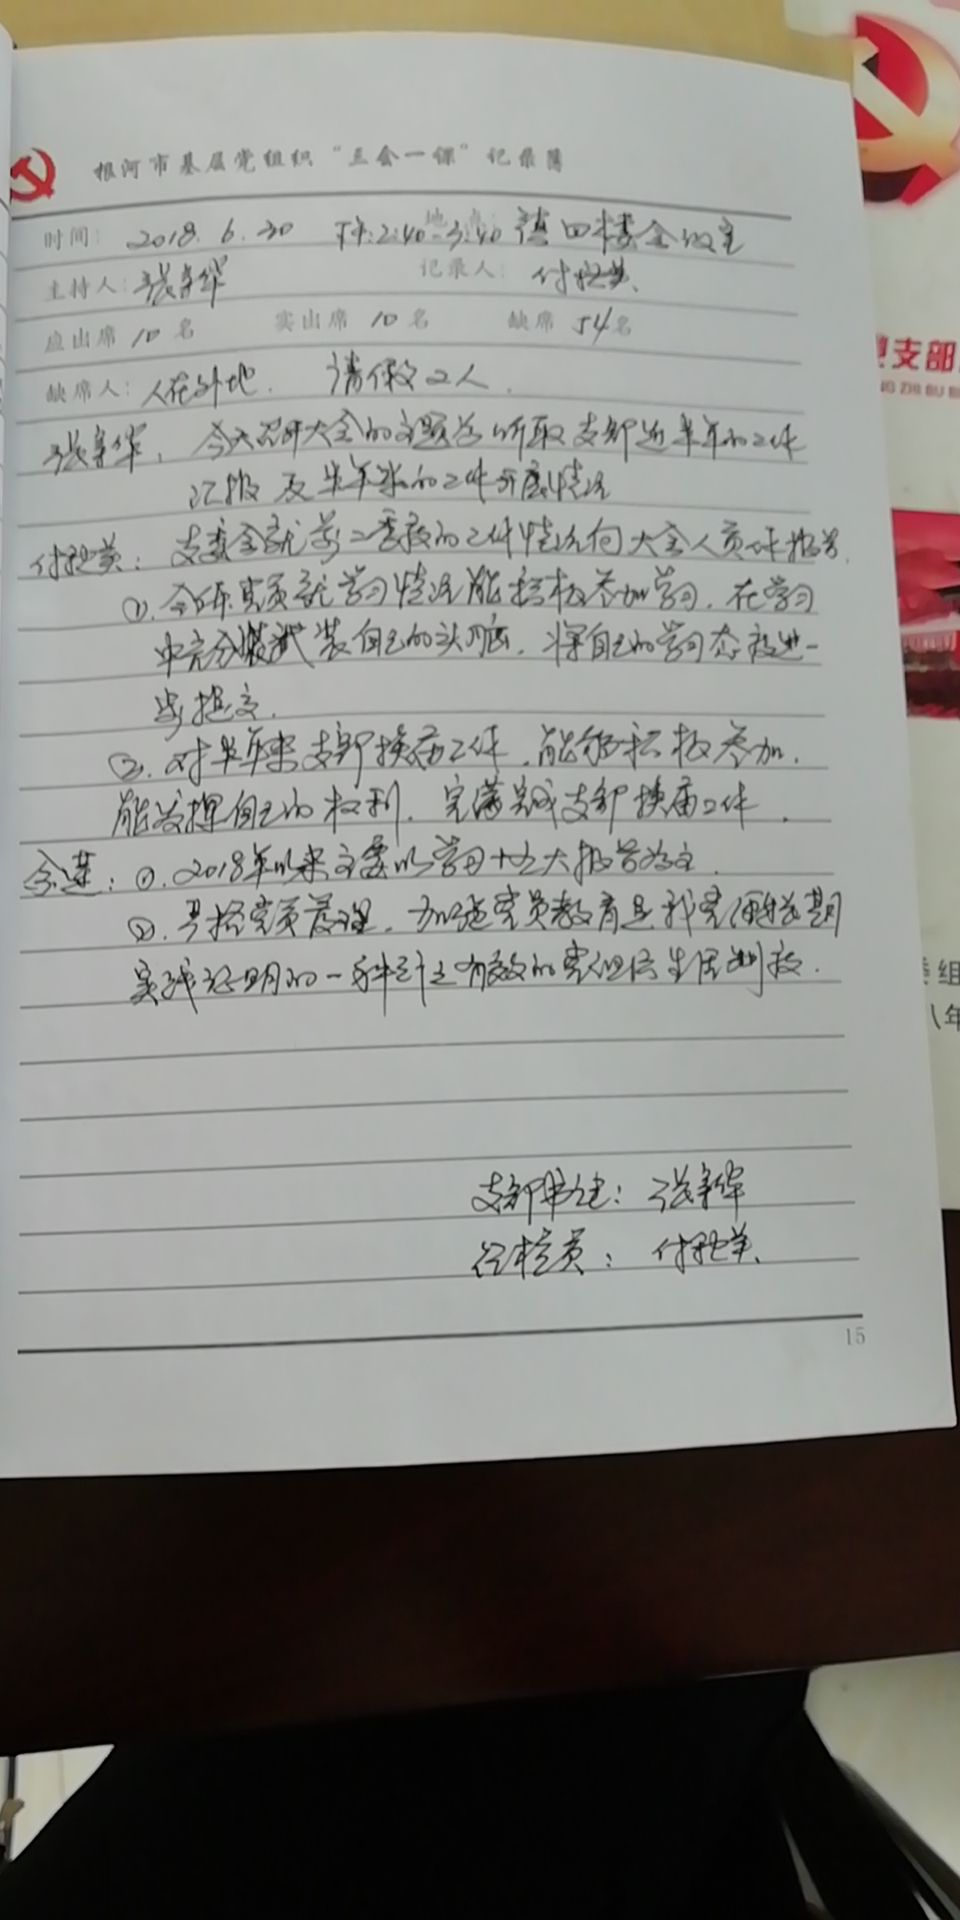 根河市基层党组织“三会一课”记录簿
时间：2018.6.30 下午:2:40-3:40 地点: 镇四楼会议室
主持人：张 华 记录人：付 英
应出席 10 名 实出席 10 名 缺席 54名
缺席人：人在外地. 请假 2人.
张 华. 今天召开大会的主题为听取支部近半年的工作
汇报及半年来的工作开展情况
付 英：支委会就前二季度的工作情况向大会人员作报告.
①.全体党员就学习情况能积极参加学习.在学习
中充分 武装自己的头脑.将自己的学习态度进一
步提高.
②.对半年来支部换届工作.能够积极参加.
能发挥自己的权利.完满完成支部换届工作.
：①.2018年以来主要以学习十九大报告为主.
②. 党员管理.加强党员教育是我党 长期
实践证明的一 行之有效的党组织生活制度.
支部书记：张 华
员：付 英.
15
支部
组
八年